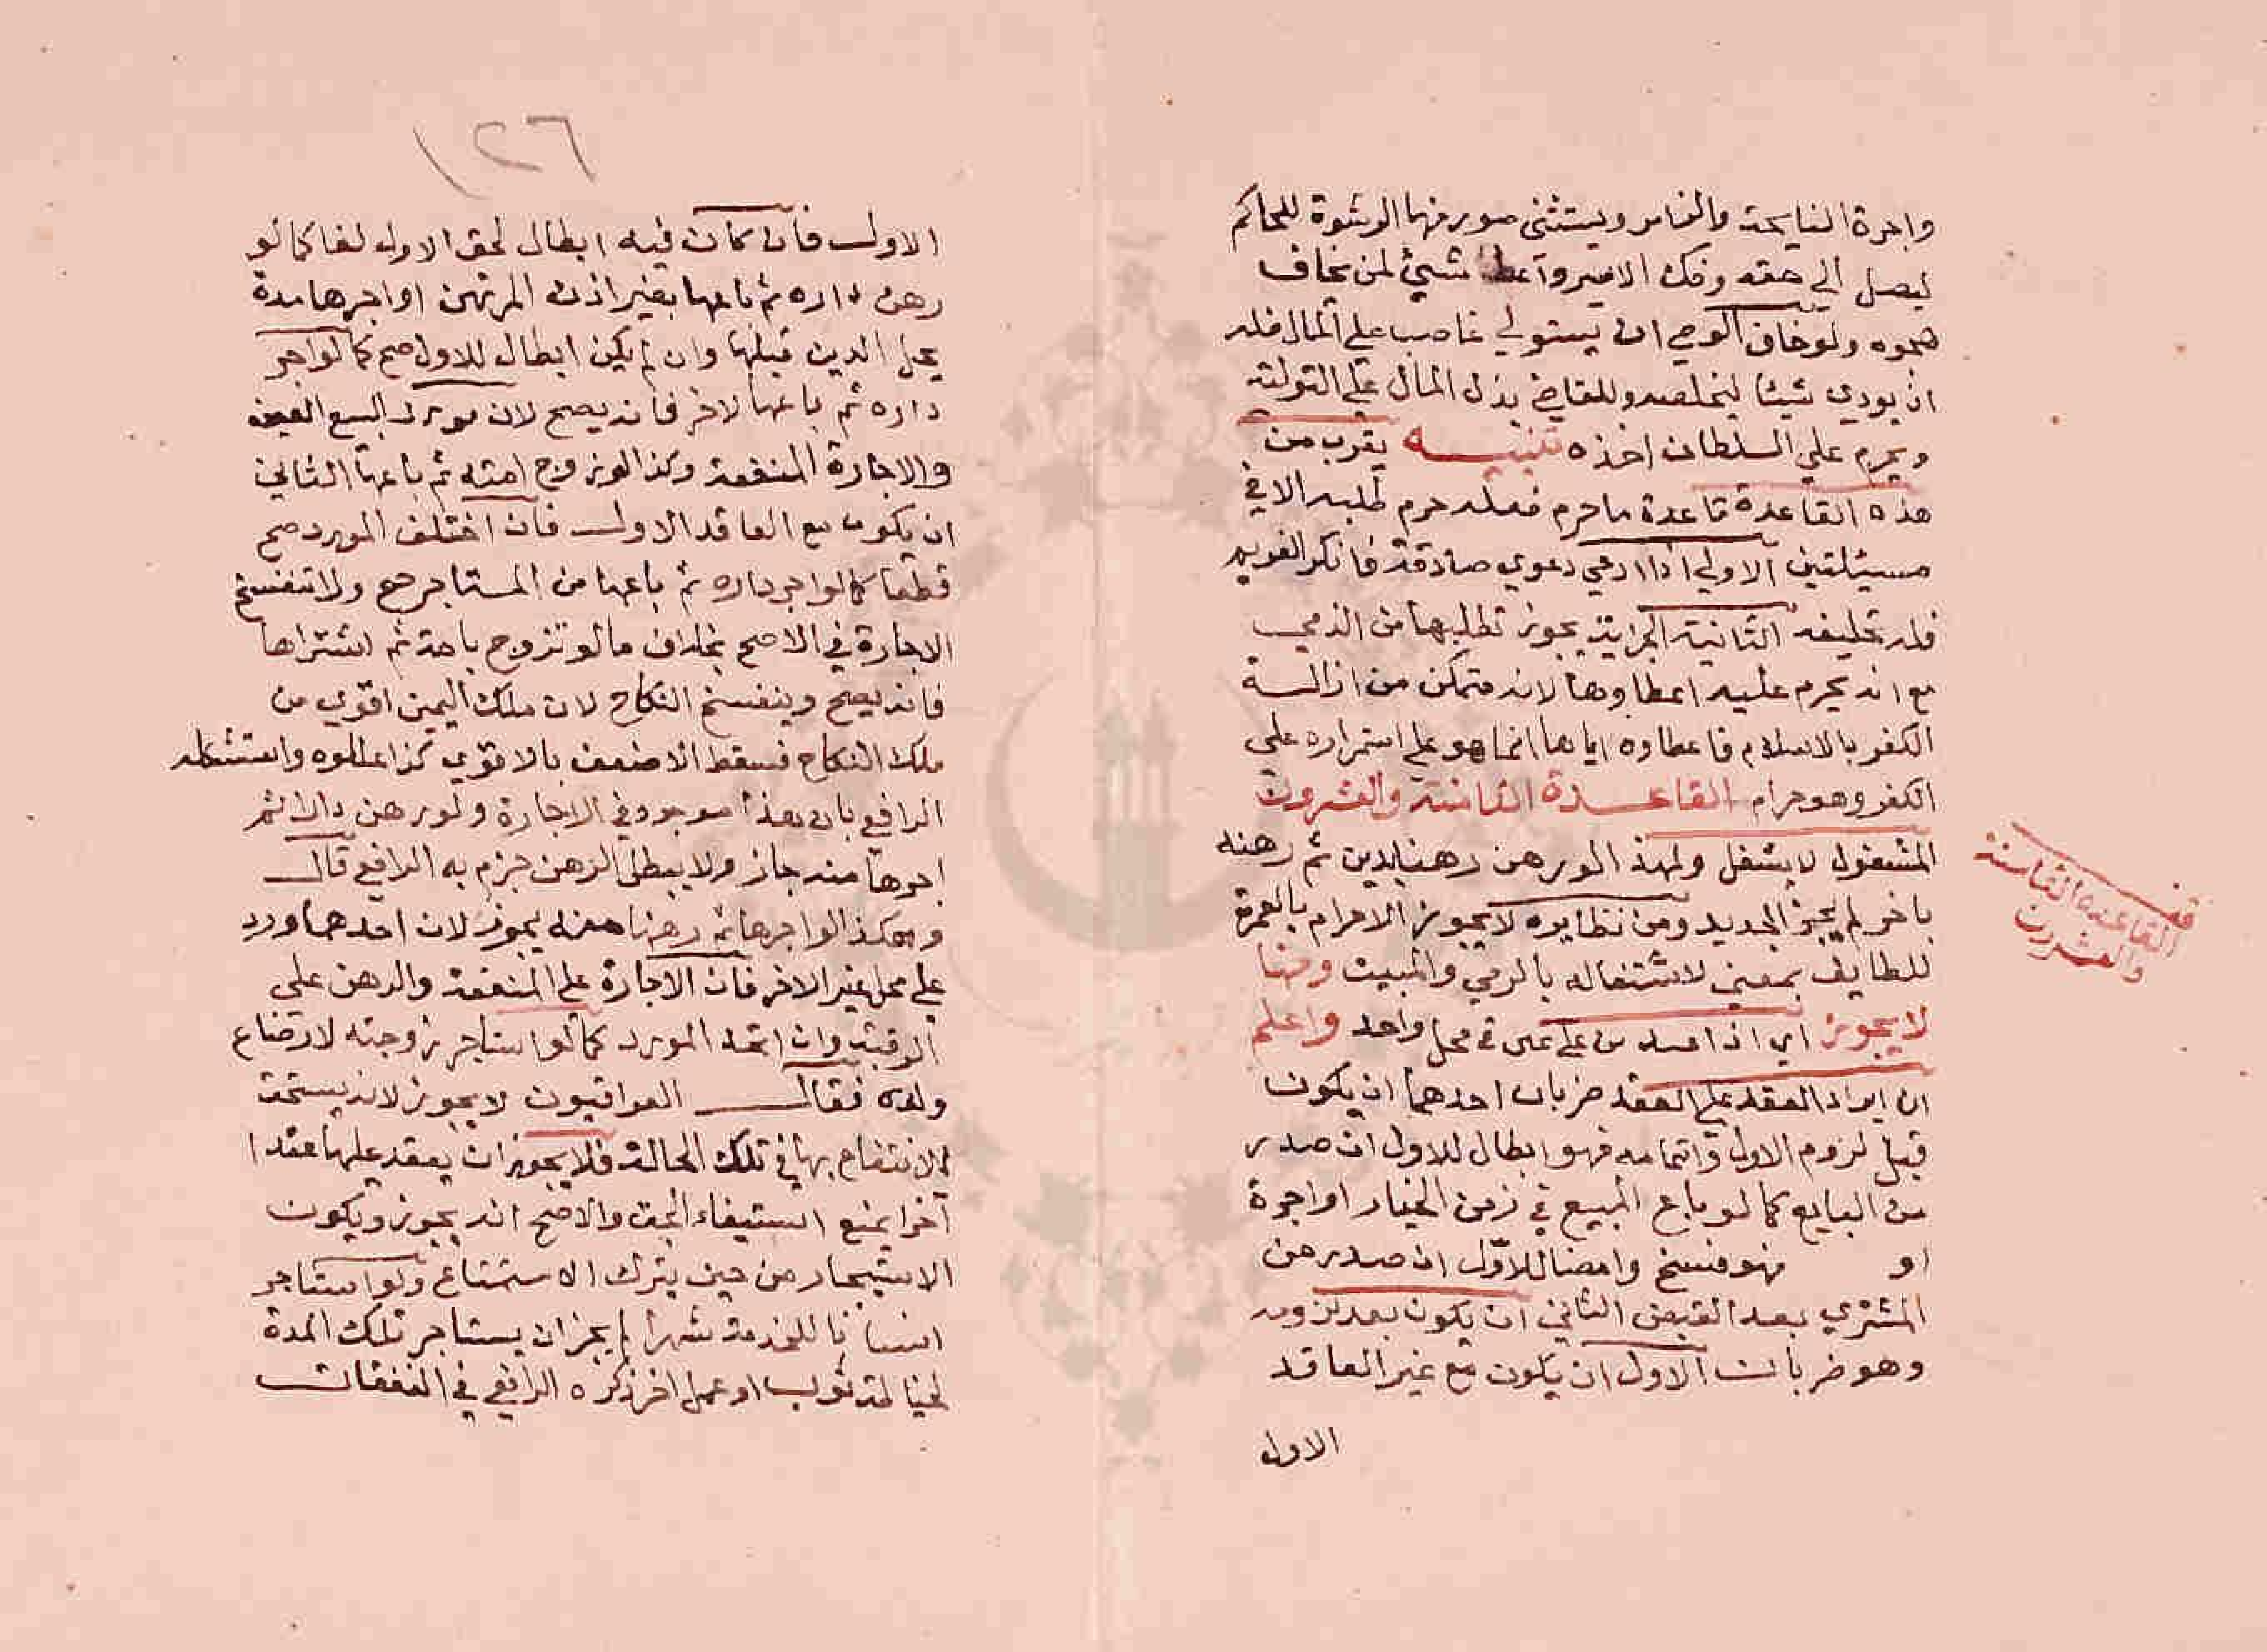 واجرة النايحة والزامر ويستثنى صور منها الرشوة للحاكم
ليصل الي حقه وفك الاسير واعطا شيئ لمن يخاف
هجوه ولو خاف الوصي ان يستولي غاصب علي المال فله
ان يودي شيئا ليخلصه وللقاضي بذل المال علي التولية
ويحرم علي السلطان اخذه تنبيــه يقرب من
هذه القاعدة قاعدة ما حرم فعله حرم طلبه الا في
مسيئلتين الاولي اذا ادعي دعوي صادقة فانكر الغريم
فله تحليفه الثانية الجزاية يجوز تطلبها من الذمي
مع انه يحرم عليه اعطاوها لانه متمكن من ازالة
الكفر بالاسلام فاعطاوه اياها انما هو علي استمراره علي
الكفر وهو حرام القاعــدة الثامنة والعشرون
المشغول لا يشغل ولهذا لو رهن رهنا بدين ثم رهنه
باخر لم يجز الجديد ومن نظايره لا يجوز الاحرام بالعمرة
للطايف بمعني لاشتغاله بالرمي والمبيت ومنها
لا يجوز اي اذا في محل واحد واعلم
ان ايراد العقد علي العقد ضربان احدهما ان يكون
قبل لزوم الاول واتمامه فهو ابطال للاول ان صدر
من البايع كما لو باع المبيع في زمن الخيار او اجرة
او فهو فسخ وامضا للاول ان صدر من
المشتري بعد القبض الثاني ان يكون بعد لزومه
وهو ضربان الاول ان يكون مع غير العاقد
الاول
قف
القاعدة الثامنة
والعشرون
١٢٦
الاول فان كان فيه ابطال لحق الاول لغا كما لو
رهن داره ثم باعها بغير اذن المرتهن او اجرها مدة
يحل الدين قبلها وان لم يكن ابطال للاول صح كما لو اجر
داره ثم باعها لاخر فانه يصح لان مورد البيع العين
والاجارة المنفعة وكذا لو زوج امته ثم باعها الثاني
ان يكون مع العاقد الاول فان اختلف المورد صح
قطعا كما لو اجر داره ثم باعها من المستاجر صح ولا تنفسخ
الاجارة في الاصح بخلاف ما لو تزوج بامة ثم اشتراها
فانه يصح وينفسخ النكاح لان ملك اليمين اقوي من
ملك النكاح فسقط الاضعف بالاقوي كذا عللوه واستشكله
الرافعي بان هذا موجود في الاجارة ولو رهن دارا ثم
اجرها منه جاز ولا يبطل الرهن جزم به الرافعي قال
وهكذا لو اجرها ثم رهنها منه يجوز لان احدهما ورد
علي محل غير الاخر فان الاجارة علي المنفعة والرهن علي
الرقبة وان اتحد المورد كما لو استاجر زوجته لارضاع
ولده فقال العراقيون لا يجوز لانه يستحق
الانتفاع بها في تلك الحالة فلا يجوز ان يعقد عليها عقدا
آخر يمنع استيفاء الحق والاصح انه يجوز ويكون
الاستيجار من حين يترك الاستمتاع ولو استاجر
انسانا للخدمة شهرا لم يجز ان يستاجر تلك المدة
لخياطة ثوب او عمل اخر ذكره الرافعي في النفقات